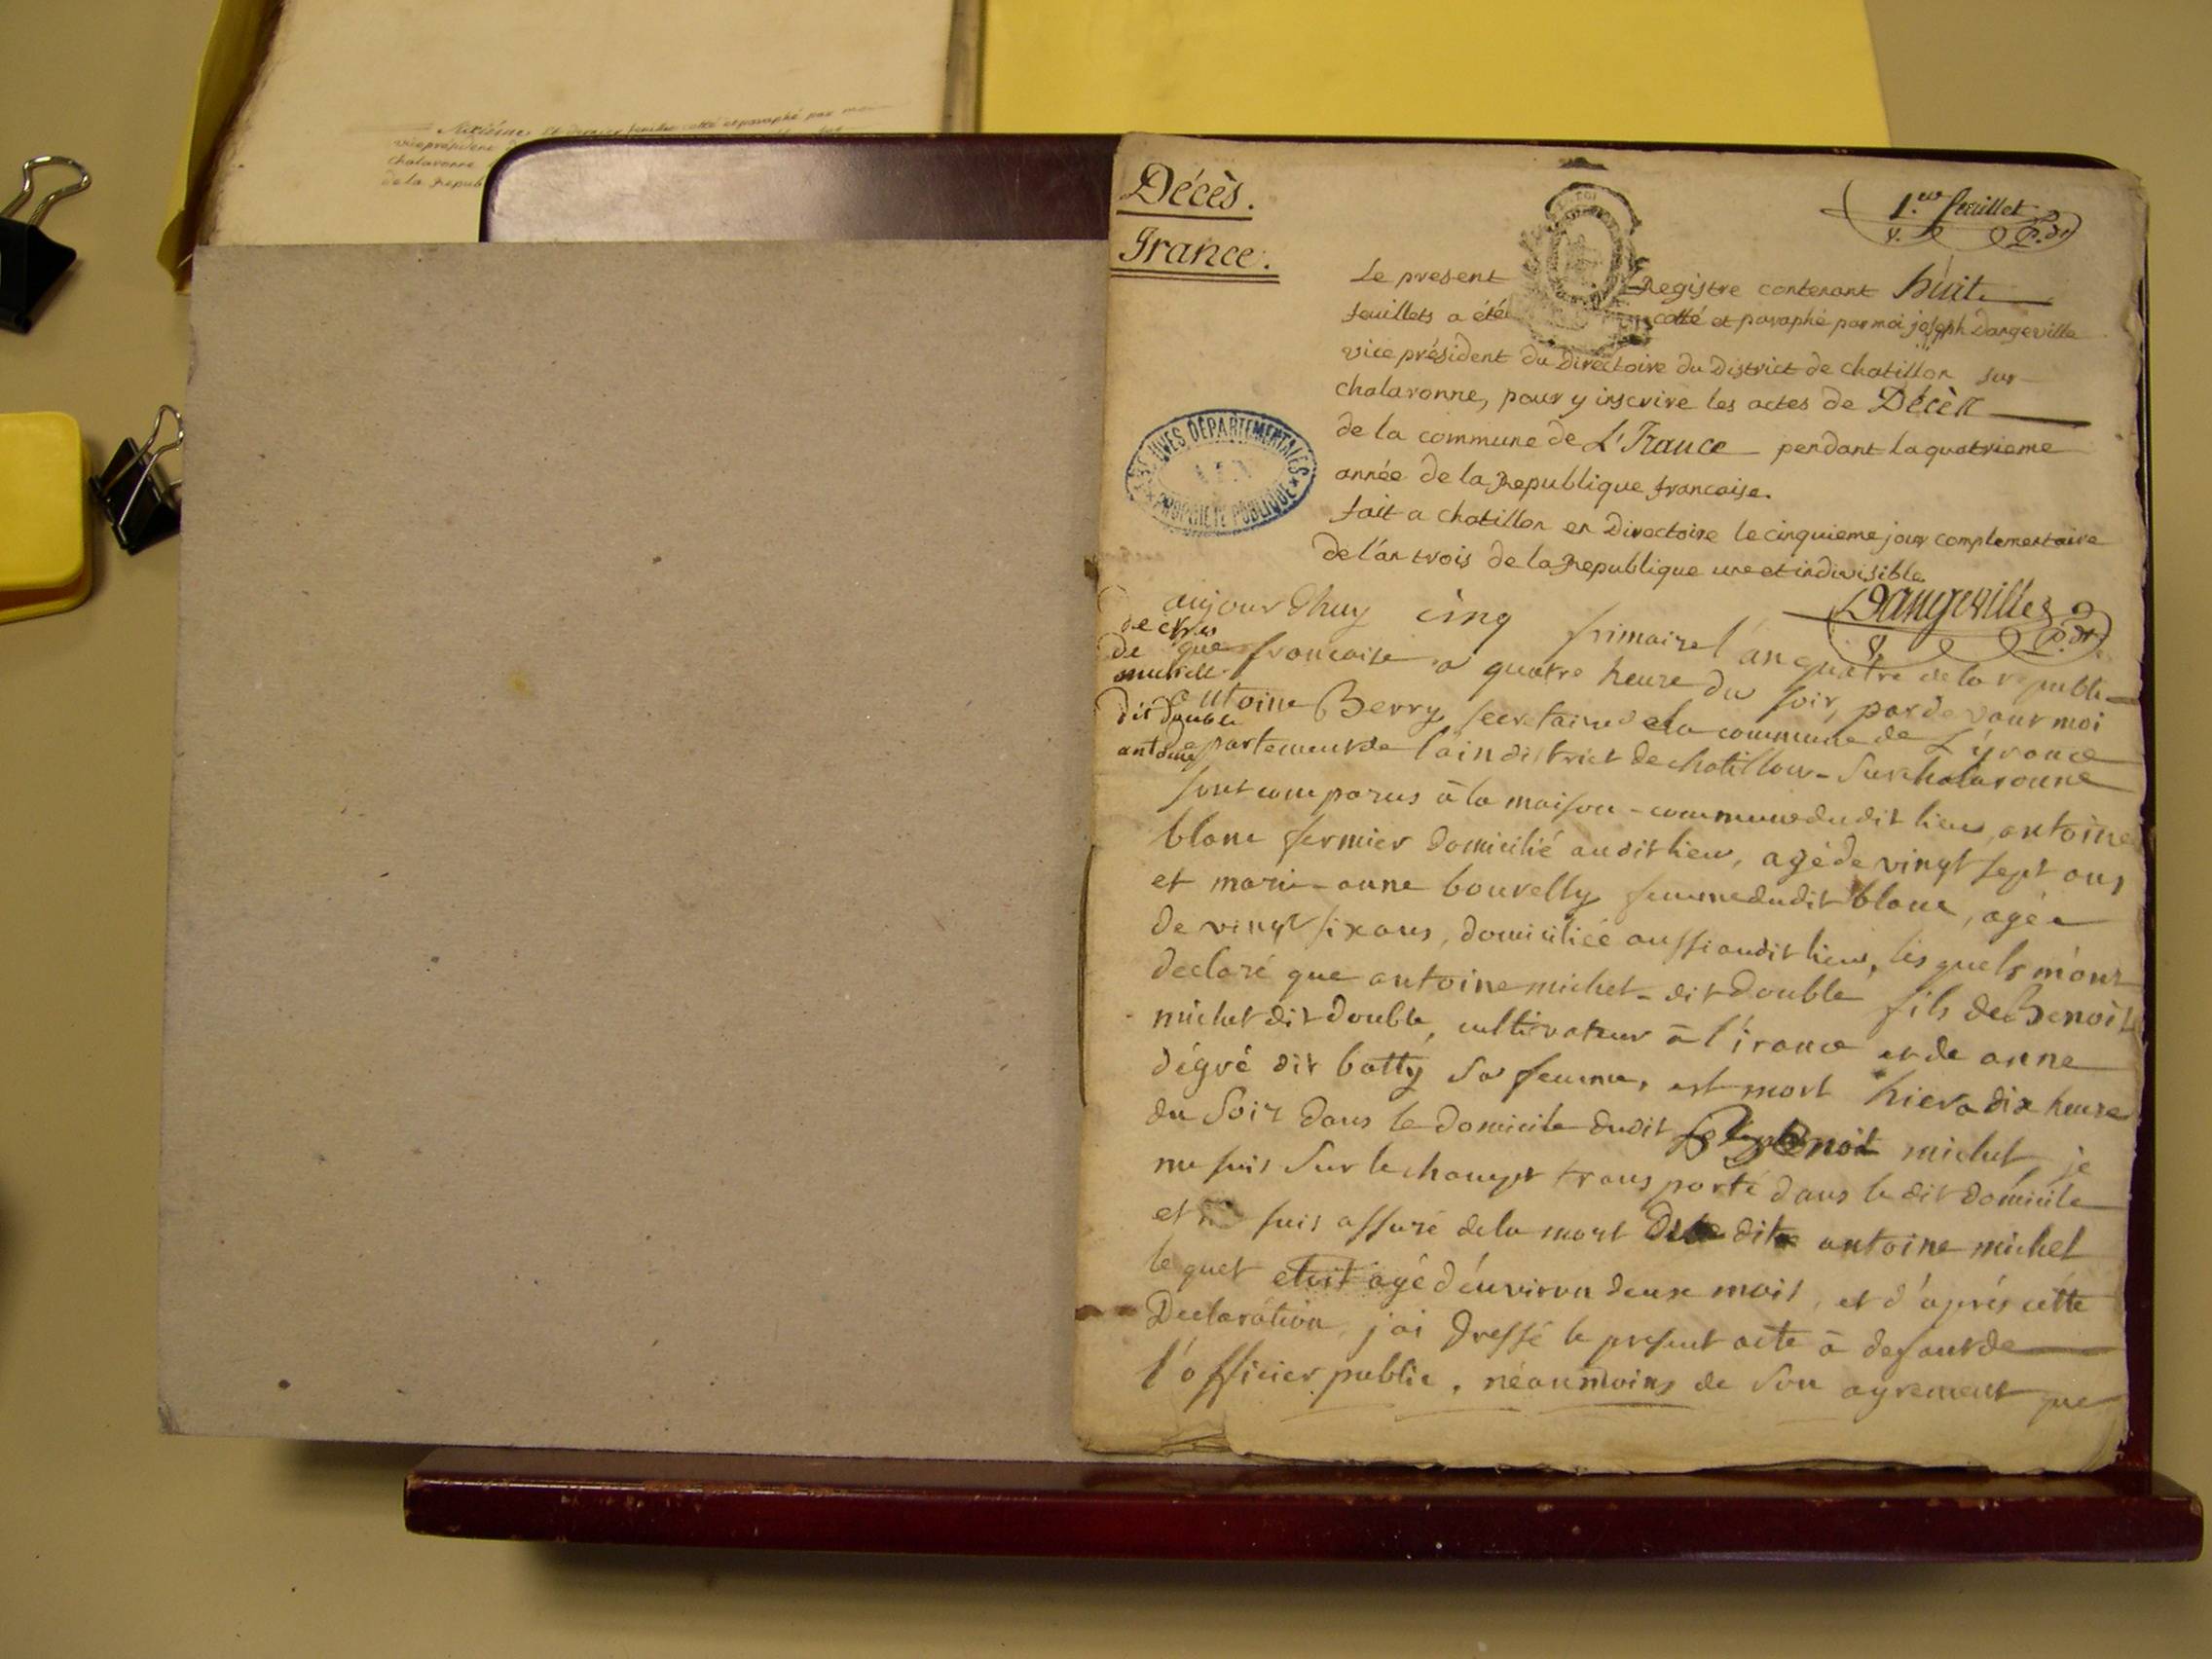 Sixiéme et dernier feuillet cotté et paraphé par moi
vice président
chalaronne
de la Repub
Décès.
Irance.
1.er feuillet
Le present Registre contenant huit
feuillets a été cotté et paraphé par moi joseph Dangeville
vice président du Directoire du District de chatillon sur
chalaronne, pour y inscrire les actes de Décès
de la commune de L'Irance pendant la quatrieme
année de la Republique francaise.
fait a chatillon en Directoire le cinquieme jour complementaire
de l'an trois de la Republique une et indivisible
Dangeville
P. dt
ARCHIVES DÉPARTEMENTALES
AIN
PROPRIÉTÉ PUBLIQUE
de
michel
dit double
antoine
aujourdhuy cinq frimaire l'an quatre de la republi-
que francaise a quatre heure du soir, par devant moi
antoine Berry secretaire de la commune de L'yrance
departement de l'ain district de chatillon-sur chalaronne
sont comparus à la maison-commune dudit lieu, antoine
blanc fermier domicilié audit lieu, agé de vingt sept ans
et marie-anne bouvelly femme dudit blanc, agée
de vingt six ans, domiciliée aussi audit lieu, les quels m'ont
declaré que antoine michel-dit double fils de Benoit
michel dit double, cultivateur à l'irance et de anne
dégré dit batty sa femme, est mort hier a dix heure
du soir dans le domicile dudit Benoit michel, je
me suis sur le champt transporté dans le dit domicile
et suis assuré de la mort dudit antoine michel
le quel etoit agé d'environ deux mois, et d'aprés cette
Declaration, j'ai dressé le present acte à defaut de
l'officier public, néanmoins de son agrement que